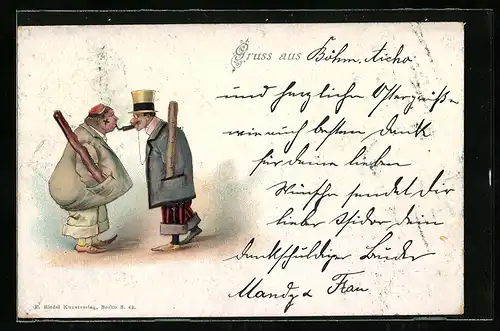 Gruss aus Böhm. Aicha
und herzlichen Ostergruß
wie auch besten Dank
für deine lieben
Wünsche sendet dir
lieber Isidor dein
dankschuldiger Bruder
Mandy & Frau
E. Riedel Kunstverlag, Berlin S. 42.